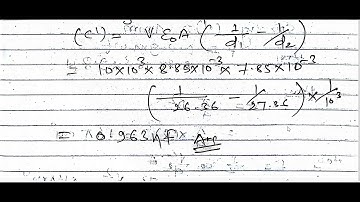 (C') = V ε₀A (1/d₁ - 1/d₂)
= 10×10³ × 8.85×10⁻³ × 7.85×10⁻³
(1/26.36 - 1/27.36) × 1/10³
= 0.963 Ans